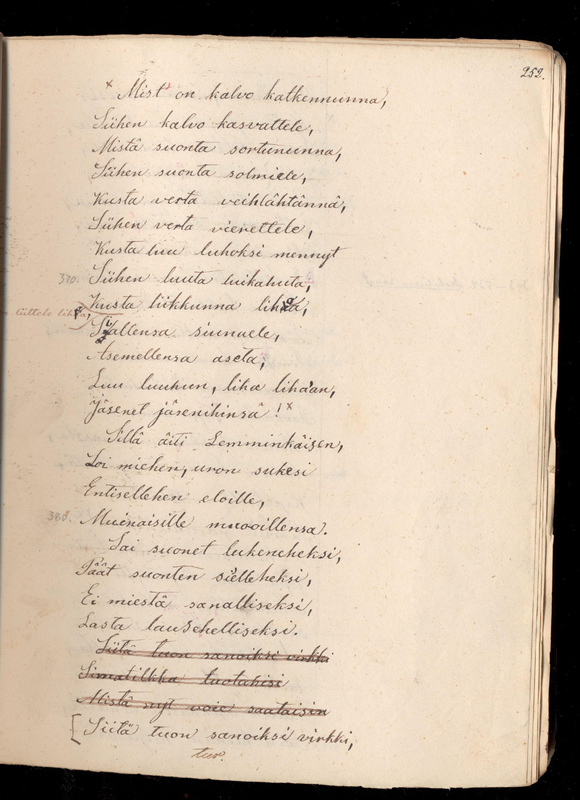 252.
× Mist' on kalvo katkennunna,
Siihen kalvo kasvattele,
Mistä suonta sortununna,
Siihen suonta solmiele,
Kusta verta veihlähtännä,
Siihen verta vierettele,
Kusta luu luhoksi mennyt
370. Siihen luuta luikahuta,
Kusta liikkunna lihoa,
Siallensa siunaele,
Asemellensa aseta,
Luu luuhun, liha lihaan,
Jäsenet jäsenihinsä! ×
Sillä äiti Lemminkäisen,
Loi miehen, uron sukesi
Entisellehen eloille,
380. Muinaisille muovoillensa.
Sai suonet lukeneheksi,
Päät suonten sielleheksi,
Ei miestä sanalliseksi,
Lasta lausehelliseksi.
Siitä tuon sanoiksi virkki
Simatilkka tuotahisi
Mistä nyt voie saataisin
[ Siitä tuon sanoiksi virkki,